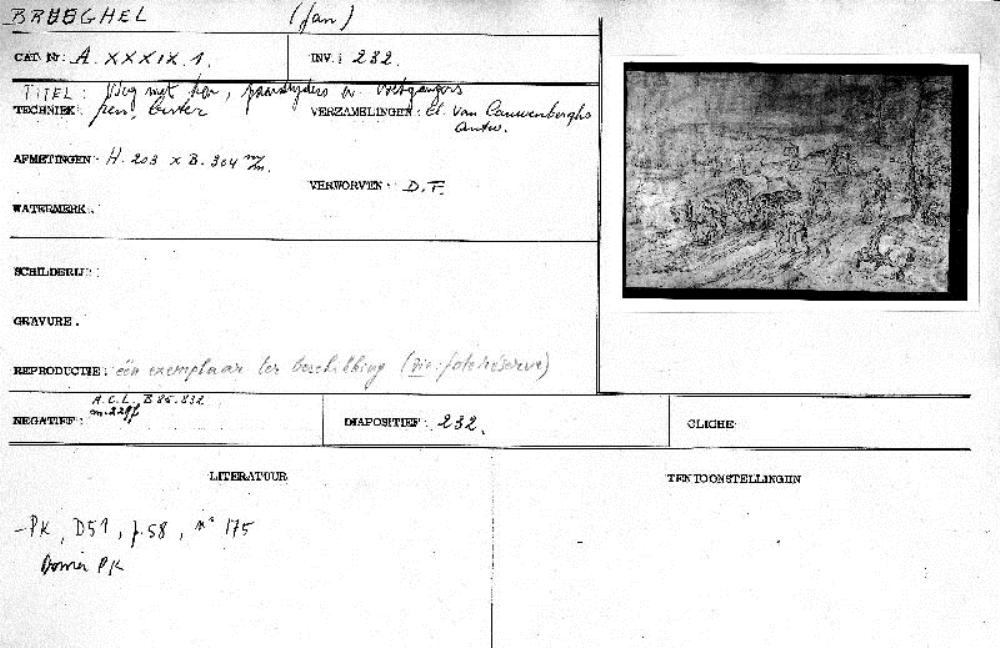 BRUEGHEL (Jan)
CAT. Nr: A. XXXIX. 1. INV.: 232.
TITEL: Weg met kar, paardrijders en voetgangers
TECHNIEK: pen, bister VERZAMELINGEN: Ed. Van Cauwenberghs
Antw.
AFMETINGEN: H. 203 x B. 304 m/m.
VERWORVEN: D.F.
WATERMERK:
SCHILDERIJ:
GRAVURE.
REPRODUCTIE: één exemplaar ter beschikking (zie: fotoréserve)
A.C.L. B 86.832
NEGATIEF: DIAPOSITIEF: 232. CLICHE
LITERATUUR TENTOONSTELLINGEN
- PK, D51, p. 58, n° 175
Dossier PK